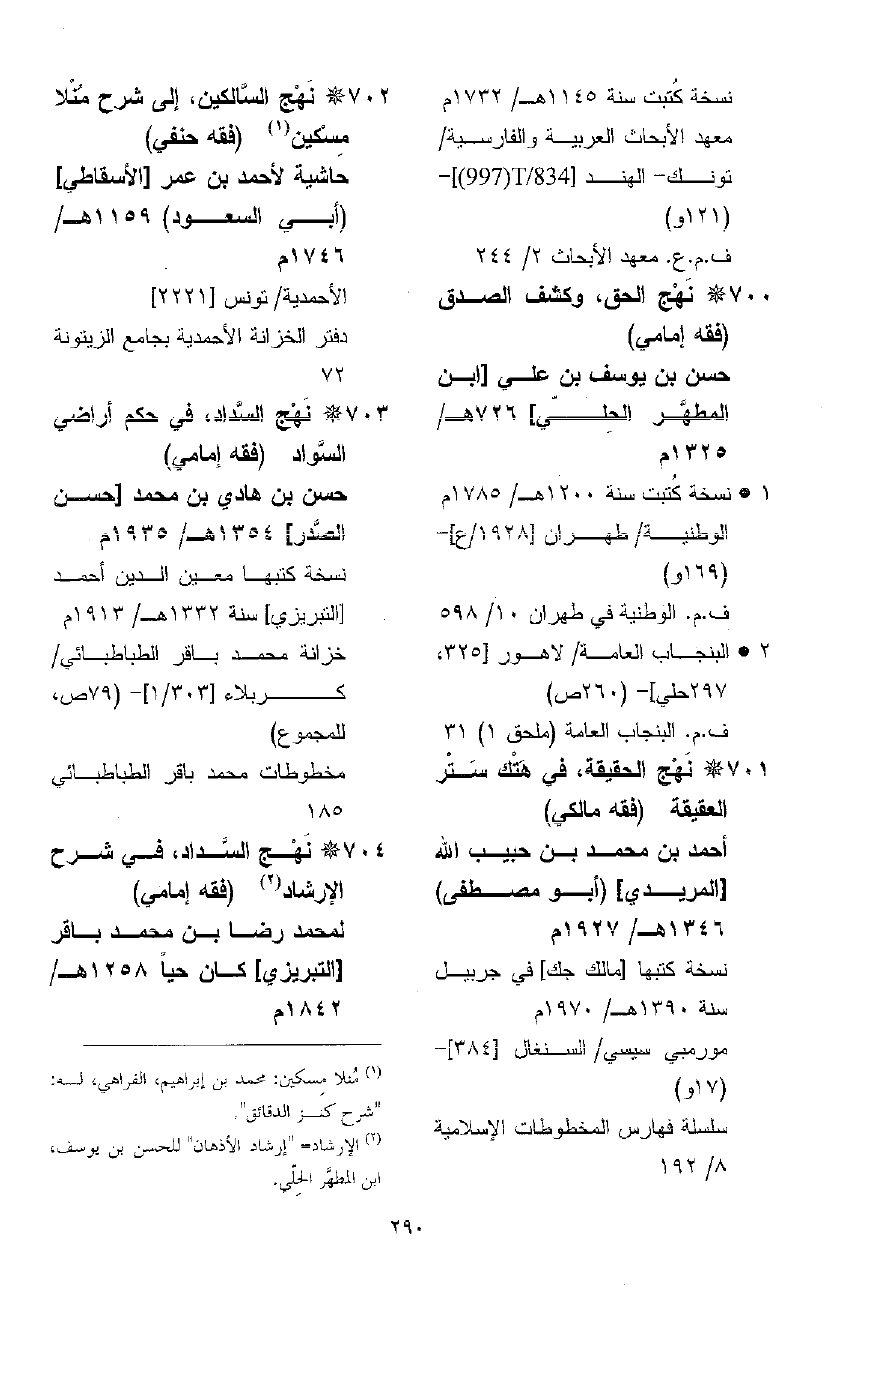 نسخة كُتبت سنة ١١٤٥هـ/ ١٧٣٢م
معهد الأبحاث العربية والفارسية/
تونك- الهند [T/834(997)]-
(١٢١و)
ف.م.ع. معهد الأبحاث ٢/ ٢٤٤
٧٠٠❋ نَهْج الحق، وكشف الصدق
(فقه إمامي)
حسن بن يوسف بن علي [ابن
المطهَّر الحلّي] ٧٢٦هـ/
١٣٢٥م
١ • نسخة كُتبت سنة ١٢٠٠هـ/ ١٧٨٥م
الوطنية/ طهران [١٩٢٨/ع]-
(١٦٩و)
ف.م. الوطنية في طهران ١٠/ ٥٩٨
٢ • البنجاب العامة/ لاهور [٣٢٥،
٢٩٧حلي]- (٢٦٠ص)
ف.م. البنجاب العامة (ملحق ١) ٣١
٧٠١❋ نَهْج الحقيقة، في هَتْك سَتْر
العقيقة (فقه مالكي)
أحمد بن محمد بن حبيب الله
[المريدي] (أبو مصطفى)
١٣٤٦هـ/ ١٩٢٧م
نسخة كتبها [مالك جك] في جربيل
سنة ١٣٩٠هـ/ ١٩٧٠م
مورمبي سيسي/ السنغال [٣٨٤]-
(١٧و)
سلسلة فهارس المخطوطات الإسلامية
٨/ ١٩٢
٧٠٢❋ نَهْج السَّالكين، إلى شرح مُنْلا
مِسكين(١) (فقه حنفي)
حاشية لأحمد بن عمر [الأسقاطي]
(أبي السعود) ١١٥٩هـ/
١٧٤٦م
الأحمدية/ تونس [٢٢٢١]
دفتر الخزانة الأحمدية بجامع الزيتونة
٧٢
٧٠٣❋ نَهْج السَّداد، في حكم أراضي
السَّواد (فقه إمامي)
حسن بن هادي بن محمد [حسن
الصَّدر] ١٣٥٤هـ/ ١٩٣٥م
نسخة كتبها معين الدين أحمد
[التبريزي] سنة ١٣٣٢هـ/ ١٩١٣م
خزانة محمد باقر الطباطبائي/
كربلاء [١/٣٠٣]- (٧٩ص،
للمجموع)
مخطوطات محمد باقر الطباطبائي
١٨٥
٧٠٤❋ نَهْج السَّداد، في شرح
الإرشاد(٢) (فقه إمامي)
لمحمد رضا بن محمد باقر
[التبريزي] كان حياً ١٢٥٨هـ/
١٨٤٢م
(١) مُنلا مِسكين: محمد بن إبراهيم، الفراهي، له:
"شرح كنز الدقائق".
(٢) الإرشاد= "إرشاد الأذهان" للحسن بن يوسف،
ابن المطهَّر الحلِّي.
٢٩٠